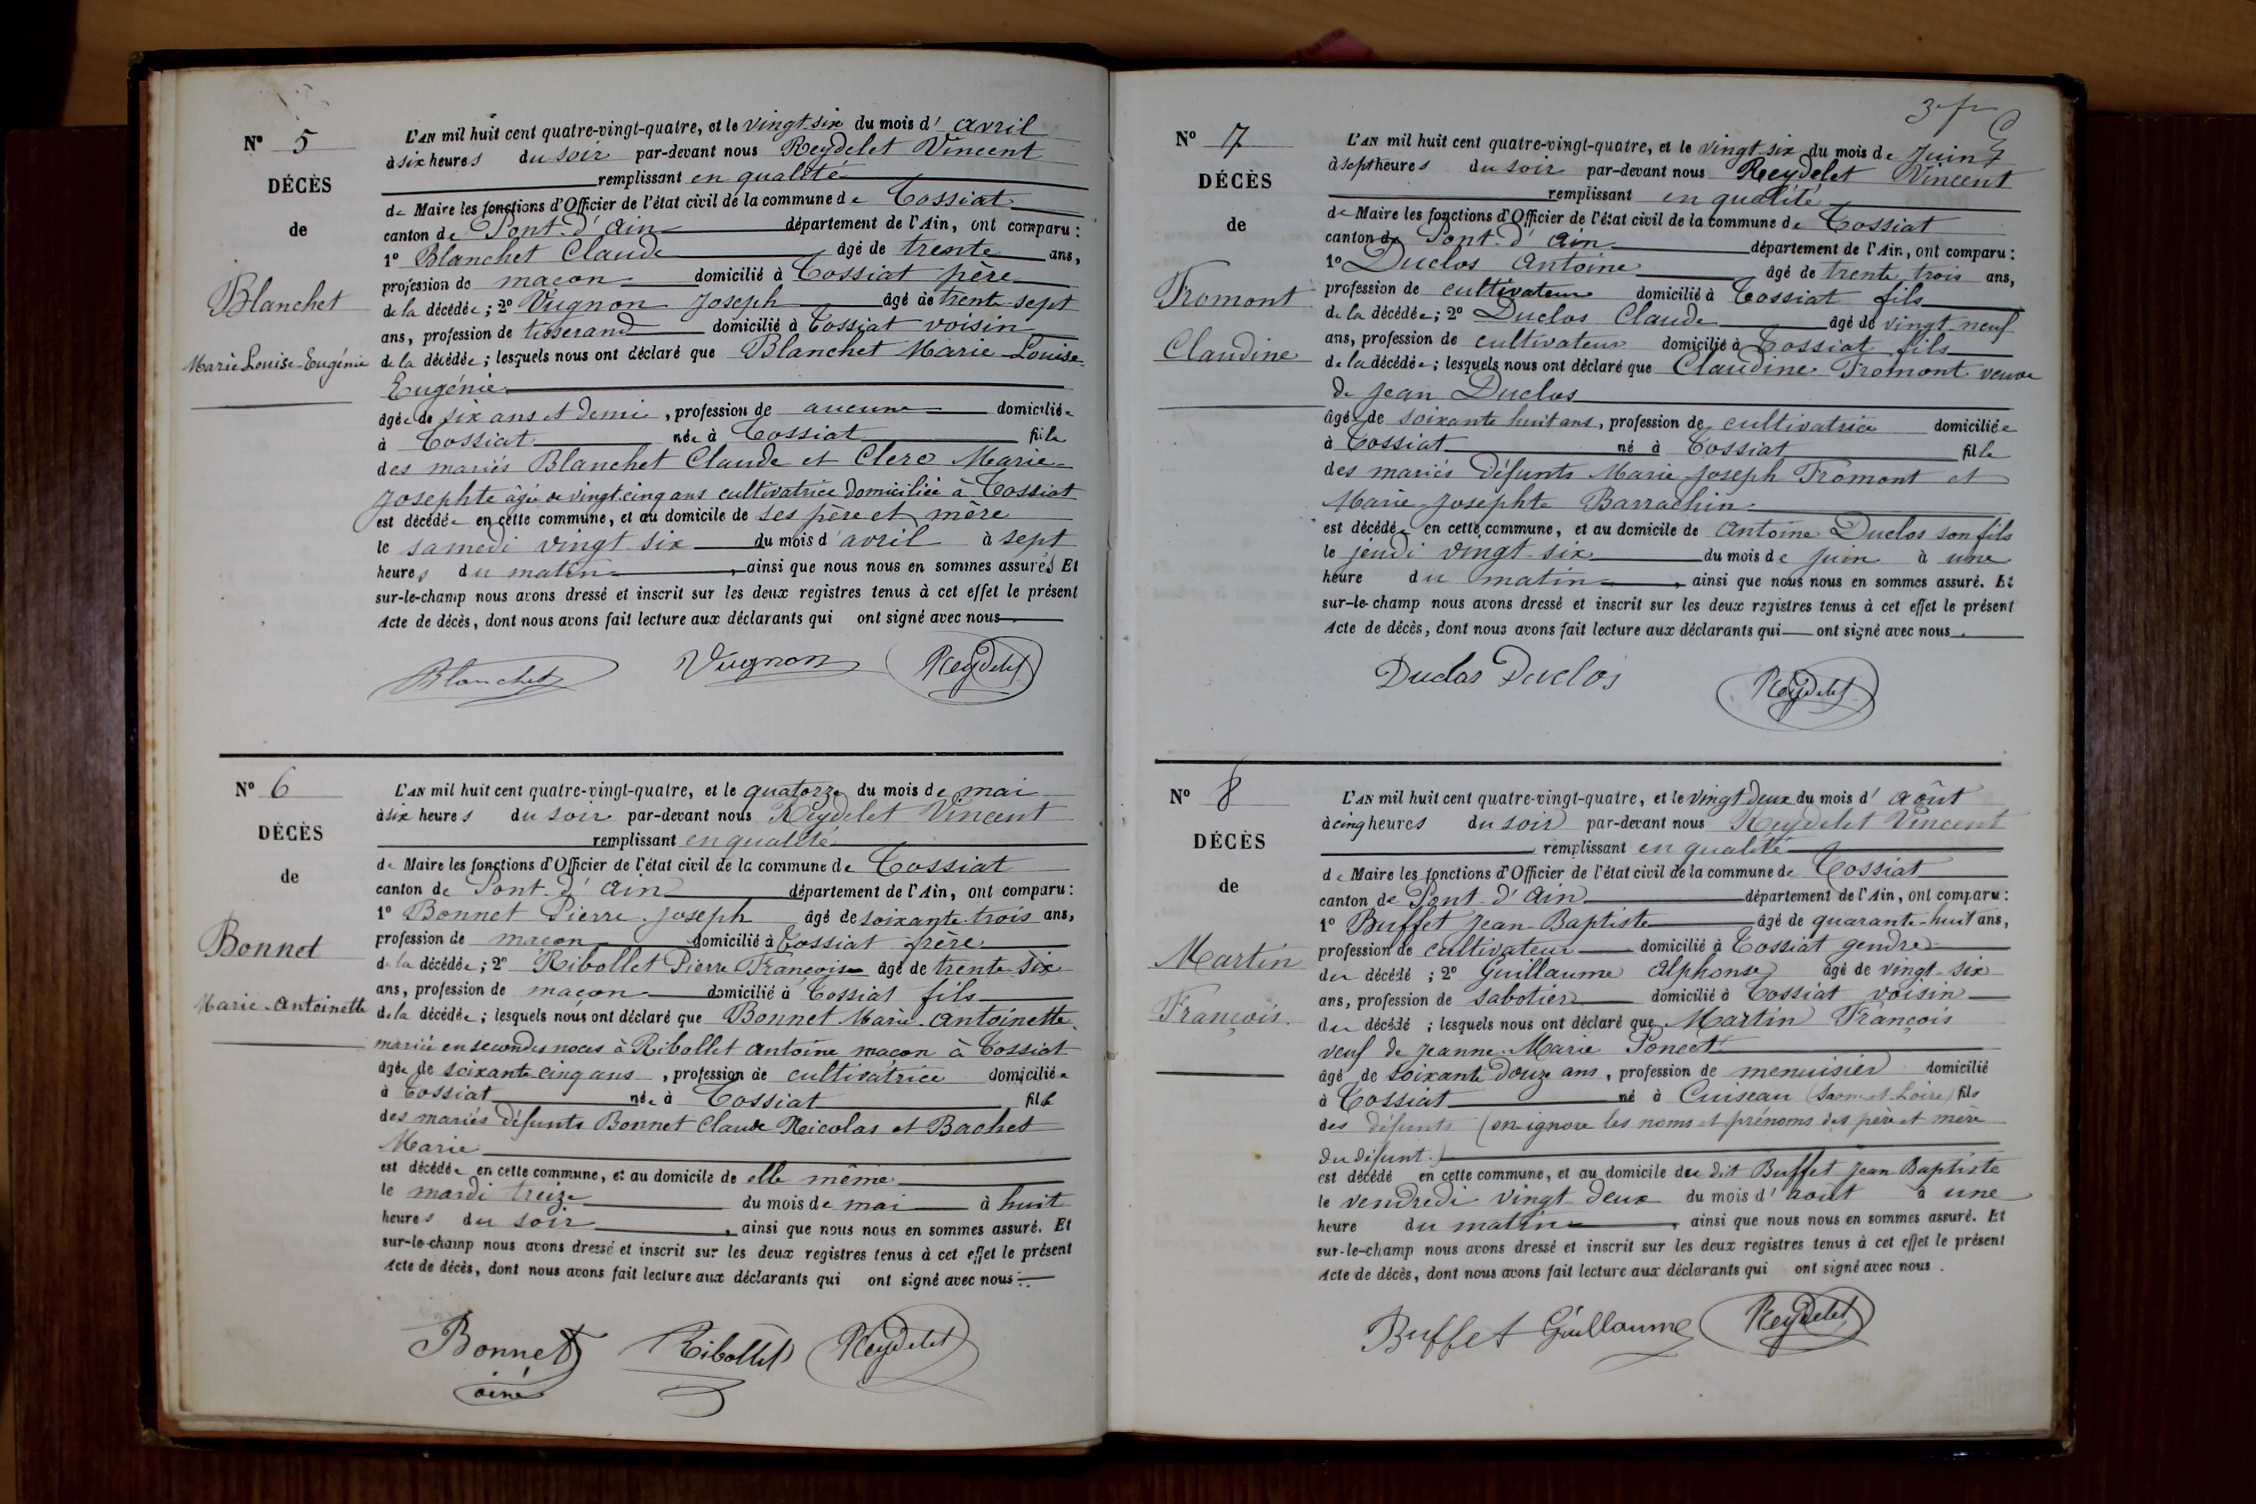 Nº 5
DÉCÈS
de
Blanchet
Marie Louise-Eugénie
L'AN mil huit cent quatre-vingt-quatre, et le vingt-six du mois d' avril
à six heures du soir par-devant nous Reydelet Vincent
remplissant en qualité
de Maire les fonctions d'Officier de l'état civil de la commune de Tossiat
canton de Pont-d'Ain département de l'Ain, ont comparu :
1º Blanchet Claude âgé de trente ans,
profession de maçon domicilié à Tossiat père
de la décédée ; 2º Vugnon Joseph âgé de trente-sept
ans, profession de tisserand domicilié à Tossiat voisin
de la décédée ; lesquels nous ont déclaré que Blanchet Marie-Louise-
Eugénie
âgée de six ans et demie, profession de aucune domiciliée
à Tossiat née à Tossiat fille
des mariés Blanchet Claude et Clerc Marie-
Josephte âgée de vingt cinq ans cultivatrice domiciliée à Tossiat
est décédée en cette commune, et au domicile de ses père et mère
le samedi vingt six du mois d'avril à sept
heures du matin, ainsi que nous nous en sommes assurés Et
sur-le-champ nous avons dressé et inscrit sur les deux registres tenus à cet effet le présent
Acte de décès, dont nous avons fait lecture aux déclarants qui ont signé avec nous.
Blanchet Vugnon Reydelet
Nº 6
DÉCÈS
de
Bonnet
Marie-Antoinette
L'AN mil huit cent quatre-vingt-quatre, et le quatorze du mois de mai
à six heures du soir par-devant nous Reydelet Vincent
remplissant en qualité
de Maire les fonctions d'Officier de l'état civil de la commune de Tossiat
canton de Pont-d'Ain département de l'Ain, ont comparu :
1º Bonnet Pierre-Joseph âgé de soixante-trois ans,
profession de maçon domicilié à Tossiat frère
de la décédée ; 2º Ribollet Pierre François âgé de trente six
ans, profession de maçon domicilié à Tossiat fils
de la décédée ; lesquels nous ont déclaré que Bonnet Marie-Antoinette
mariée en secondes noces à Ribollet Antoine maçon à Tossiat
âgée de soixante cinq ans, profession de cultivatrice domiciliée
à Tossiat née à Tossiat fille
des mariés défunts Bonnet Claude Nicolas et Bachet
Marie
est décédée en cette commune, et au domicile de elle même
le mardi treize du mois de mai à huit
heures du soir, ainsi que nous nous en sommes assuré. Et
sur-le-champ nous avons dressé et inscrit sur les deux registres tenus à cet effet le présent
Acte de décès, dont nous avons fait lecture aux déclarants qui ont signé avec nous.
Bonnet Ribollet Reydelet
ainé
Nº 7
DÉCÈS
de
Fromont
Claudine
L'AN mil huit cent quatre-vingt-quatre, et le vingt-six du mois de Juin
à sept heures du soir par-devant nous Reydelet Vincent
remplissant en qualité
de Maire les fonctions d'Officier de l'état civil de la commune de Tossiat
canton de Pont-d'Ain département de l'Ain, ont comparu :
1º Duclos Antoine âgé de trente trois ans,
profession de cultivateur domicilié à Tossiat fils
de la décédée ; 2º Duclos Claude âgé de vingt-neuf
ans, profession de cultivateur domicilié à Tossiat fils
de la décédée ; lesquels nous ont déclaré que Claudine Fromont veuve
de Jean Duclos
âgée de soixante huit ans, profession de cultivatrice domiciliée
à Tossiat né à Tossiat fille
des mariés défunts Marie Joseph Fromont et
Marie-Josephte Barrachin
est décédée en cette commune, et au domicile de Antoine Duclos son fils
le jeudi vingt-six du mois de juin à une
heure du matin, ainsi que nous nous en sommes assuré. Et
sur-le-champ nous avons dressé et inscrit sur les deux registres tenus à cet effet le présent
Acte de décès, dont nous avons fait lecture aux déclarants qui ont signé avec nous.
Duclos Duclos Reydelet
Nº 8
DÉCÈS
de
Martin
François.
L'AN mil huit cent quatre-vingt-quatre, et le vingt deux du mois d' août
à cinq heures du soir par-devant nous Reydelet Vincent
remplissant en qualité
de Maire les fonctions d'Officier de l'état civil de la commune de Tossiat
canton de Pont-d'Ain département de l'Ain, ont comparu :
1º Buffet Jean-Baptiste âgé de quarante-huit ans,
profession de cultivateur domicilié à Tossiat gendre
du décédé ; 2º Guillaume Alphonse âgé de vingt-six
ans, profession de sabotier domicilié à Tossiat voisin
du décédé ; lesquels nous ont déclaré que Martin François
veuf de Jeanne-Marie Poncet
âgé de soixante douze ans, profession de menuisier domicilié
à Tossiat né à Cuiseau (Saone-et-Loire) fils
des défunts (on ignore les noms et prénoms des père et mère
du défunt.)
est décédé en cette commune, et au domicile du dit Buffet Jean-Baptiste
le vendredi vingt deux du mois d'août à une
heure du matin, ainsi que nous nous en sommes assuré. Et
sur-le-champ nous avons dressé et inscrit sur les deux registres tenus à cet effet le présent
Acte de décès, dont nous avons fait lecture aux déclarants qui ont signé avec nous.
Buffet Guillaume Reydelet